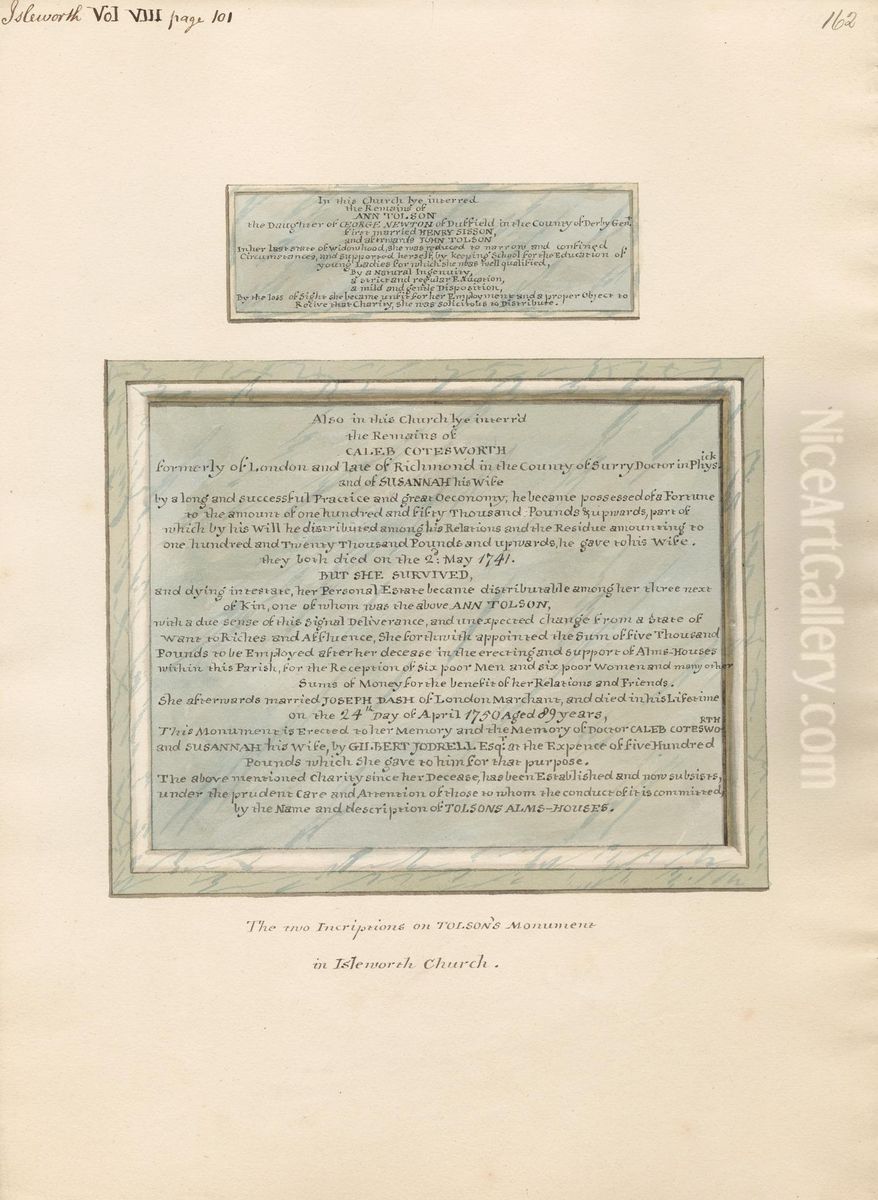 Isleworth Vol VIII page 101
162
In this Church lye interred
the Remains of
ANN TOLSON
the Daughter of GEORGE NEWTON of Duffield in the County of Derby Gent.
first married HENRY SISSON,
and afterwards JOHN TOLSON
In her last state of Widowhood, she was reduced to narrow and confined
Circumstances, and supported herself, by keeping School for the Education of
young Ladies for which she was well qualified,
By a Natural Ingenuity,
a strict and regular Education,
a mild and gentle Disposition,
By the loss of Sight she became unfit for her Employment and a proper Object to
Recive that Charity, she was solicitous to Distribute.
Also in this Church lye interr'd
the Remains of
CALEB COTESWORTH
formerly of London and late of Richmond in the County of Surry Doctor in Physick
and of SUSANNAH his Wife
by a long and successful Practice and great Oeconomy, he became possessed of a Fortune
to the amount of one hundred and fifty Thousand Pounds & upwards, part of
which by his Will he distributed among his Relations and the Residue amounting to
one hundred and Twenty Thousand Pounds and upwards, he gave to his Wife.
they both died on the 2d. May 1741.
BUT SHE SURVIVED,
and dying intestate, her Personal Estate became distributable among her three next
of Kin, one of whom was the above ANN TOLSON,
with a due sense of this Signal Deliverance, and unexpected change from a State of
Want to Riches and Affluence, She forthwith appointed the Sum of five Thousand
Pounds to be Employed after her decease in the erecting and support of Alms-Houses
within this Parish, for the Reception of Six poor Men and six poor Women and many other
Sums of Money for the benefit of her Relations and Friends.
She afterwards married JOSEPH DASH of London Marchant, and died in his Lifetime
on the 24th Day of April 1750 Aged 89 years,
This Monument is Erected to her Memory and the Memory of Doctor CALEB COTESWORTH
and SUSANNAH his Wife, by GILBERT JODRELL Esqr. at the Expence of five Hundred
Pounds which She gave to him for that purpose.
The above mentioned Charity since her Decease, has been Established and now subsists,
under the prudent Care and Attention of those to whom the conduct of it is committed,
by the Name and description of TOLSONS ALMS-HOUSES.
The two Incriptions on TOLSON'S Monument
in Isleworth Church.
NiceArtGallery.com